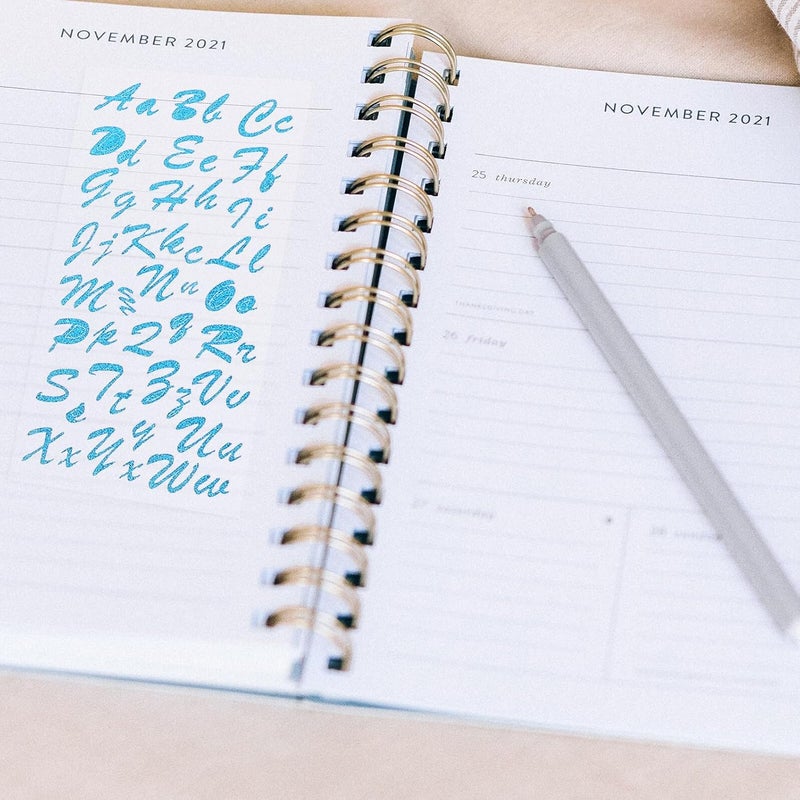 NOVEMBER 2021
Aa Bb Cc
Dd Ee Ff
Gg Hh Ii
Jj Kk c Ll
Mm Nn Oo
Pp Qq Rr
Ss Tt Zz Vv
Xx Yy x Uu
Ww
NOVEMBER 2021
25 thursday
THANKSGIVING DAY
26 friday
27 saturday
28 sunday